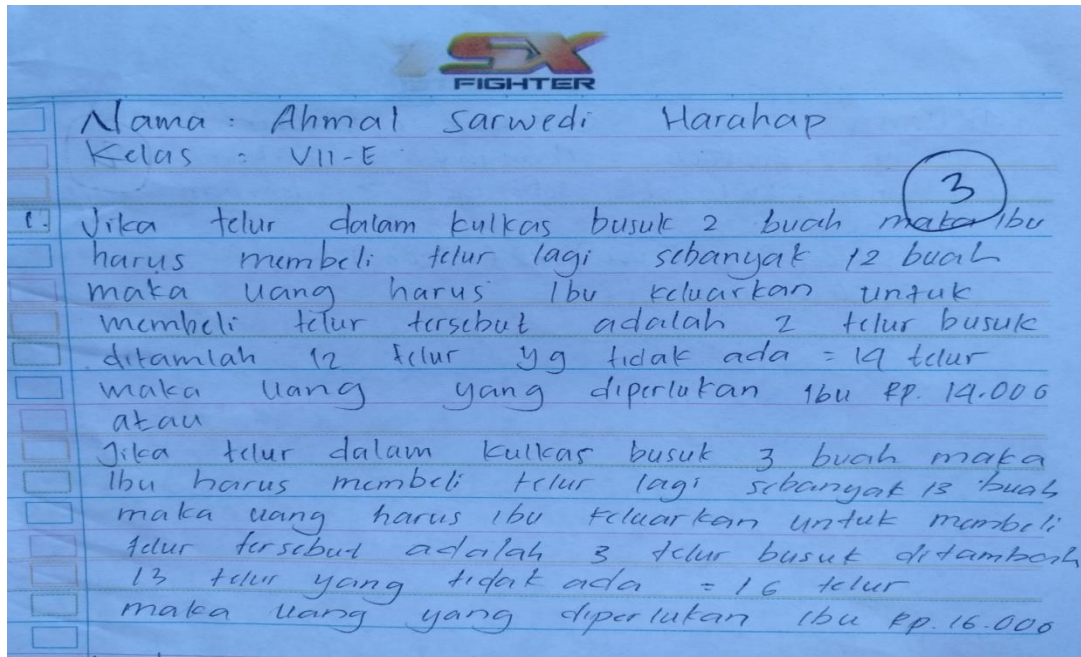 SX
FIGHTER
Nama : Ahmal Sarwedi Harahap
Kelas : VII-E
3
1. Jika telur dalam kulkas busuk 2 buah maka Ibu
harus membeli telur lagi sebanyak 12 buah
maka uang harus Ibu keluarkan untuk
membeli telur tersebut adalah 2 telur busuk
ditamlah 12 telur yg tidak ada = 14 telur
maka uang yang diperlukan Ibu Rp. 14.000
atau
Jika telur dalam kulkas busuk 3 buah maka
Ibu harus membeli telur lagi sebanyak 13 buah
maka uang harus ibu keluarkan untuk membeli
telur tersebut adalah 3 telur busuk ditambah
13 telur yang tidak ada = 16 telur
maka uang yang diperlukan Ibu Rp. 16.000